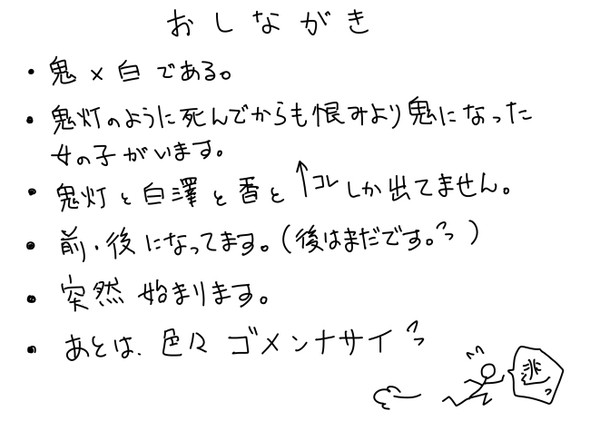 おしながき
・鬼×白である。
・鬼灯のように死んでからも恨みより鬼になった
女の子がいます。
・鬼灯と白澤と香と↑コレしか出てません。
・前・後になってます。(後はまだです。)
・突然始まります。
・あとは、色々ゴメンナサイ
逃